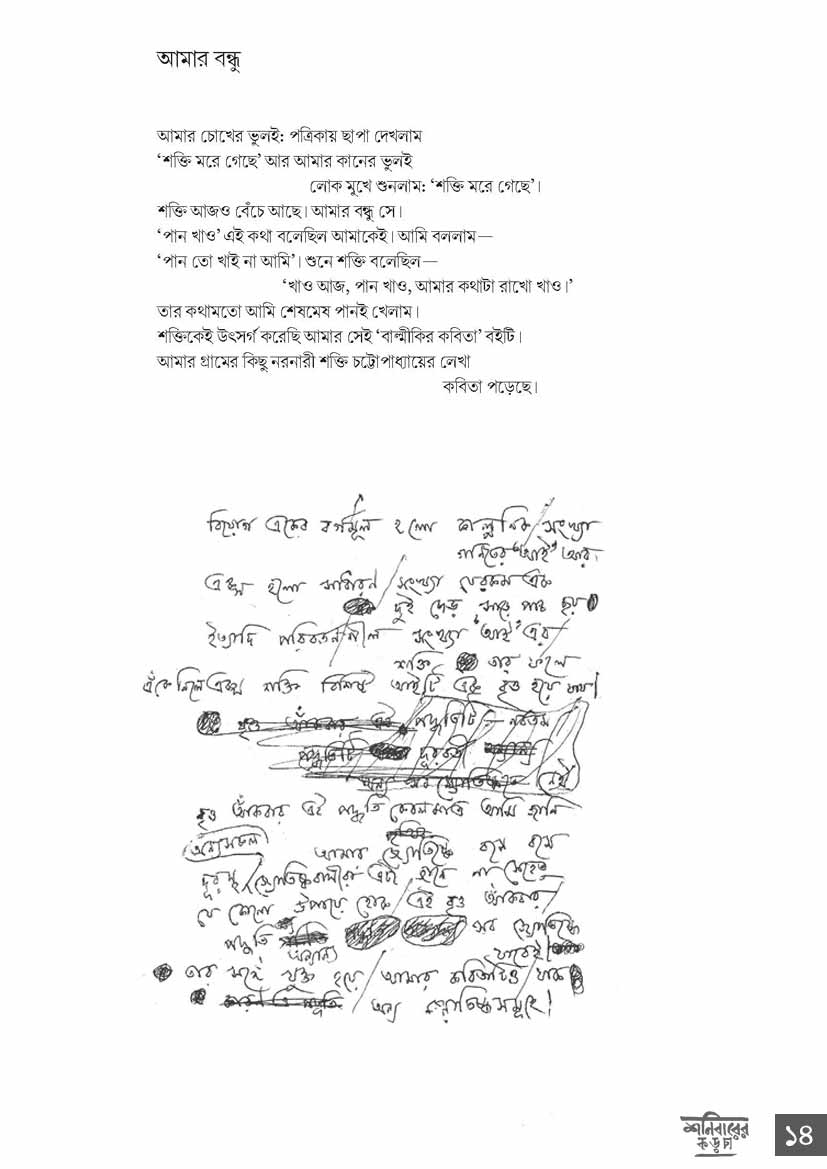 আমার বন্ধু
আমার চোখের ভুলই: পত্রিকায় ছাপা দেখলাম
‘শক্তি মরে গেছে’ আর আমার কানের ভুলই
লোক মুখে শুনলাম: ‘শক্তি মরে গেছে’।
শক্তি আজও বেঁচে আছে। আমার বন্ধু সে।
‘পান খাও’ এই কথা বলেছিল আমাকেই। আমি বললাম—
‘পান তো খাই না আমি’। শুনে শক্তি বলেছিল—
‘খাও আজ, পান খাও, আমার কথাটা রাখো খাও।’
তার কথামতো আমি শেষমেষ পানই খেলাম।
শক্তিকেই উৎসর্গ করেছি আমার সেই ‘বাল্মীকির কবিতা’ বইটি।
আমার গ্রামের কিছু নরনারী শক্তি চট্টোপাধ্যায়ের লেখা
কবিতা পড়েছে।
বিয়োগ একের বর্গমূল হলো কাল্পনিক/সংখ্যা
গণিতের ‘আই’ আর
এক্স হলো সাধারন/সংখ্যা যেরকম এক
দুই দেড় সাড়ে পাঁচ ছয়
ইত্যাদি পরিবর্তনশীল সংখ্যা ‘আই’ এর/
শক্তি তার ফলে
এঁকে নিলে এক্স শক্তি বিশিষ্ট আইটি এক বৃত্ত হয়ে যায়।
বৃত্ত আঁকবার এই পদ্ধতিটি
পদ্ধতিটি দূরবর্তী
বৃত্ত আঁকবার এই পদ্ধতি কেবলমাত্র আমি জানি
আমার জ্যোতিষ্কে বসে বসে
দূরস্থ/জ্যোতিষ্কবাসীরা এটা জানে না যেহেতু
যে কোনো উপায়ে হোক এই বৃত্ত আঁকবার/
পদ্ধতি সব জ্যোতিষ্কে
অন্যান্য যাবেই
তার সঙ্গে যুক্ত হয়ে/আমার কবিতাটিও যাক
অন্য জ্যোতিষ্কসমূহে।
শনিবারের
কড়চা
১৪